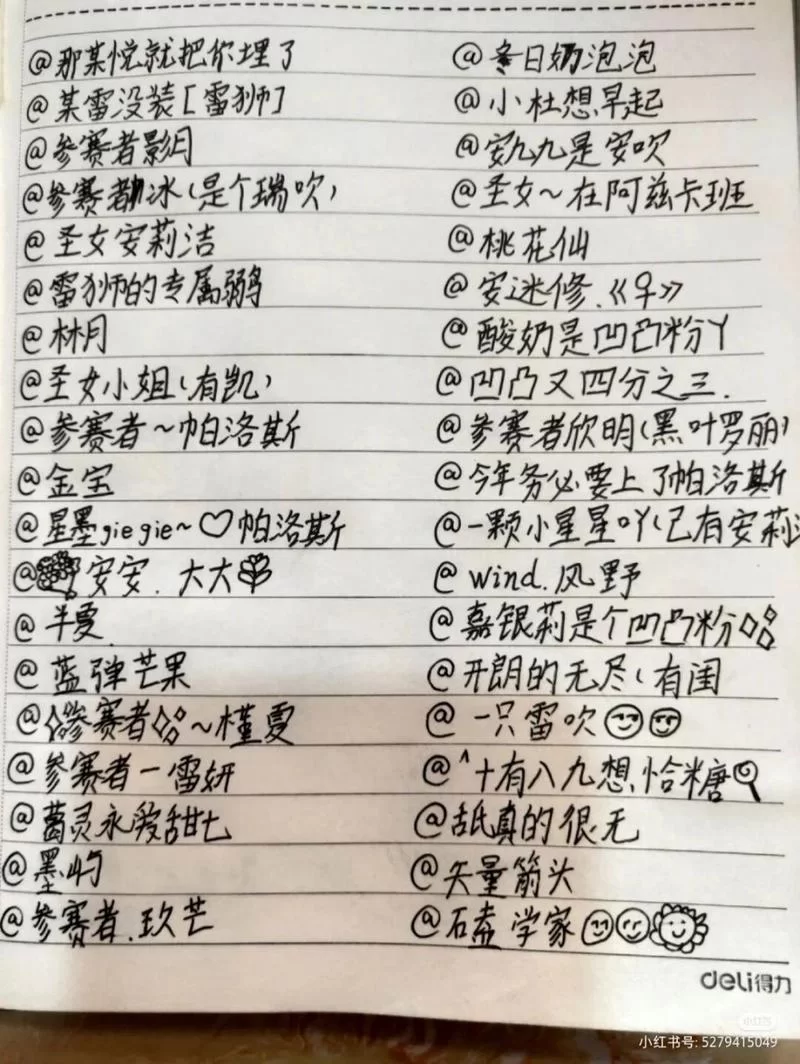 @那某悦就把你埋了 @冬日奶泡泡
@某雷没装[雷狮] @小杜想早起
@参赛者影月 @安九九是安吹
@参赛者冰(是个瑞吹) @圣女~在阿兹卡班
@圣女安莉洁 @桃花仙
@雷狮的专属弱鸡 @安迷修.《♀》
@林月 @酸奶是凹凸粉丫
@圣女小姐(有凯) @凹凸又四分之三.
@参赛者~帕洛斯 @参赛者欣明(黑叶罗丽)
@金宝 @今年务必要上了帕洛斯
@星墨giegie~♡帕洛斯 @一颗小星星吖(已有安莉洁
@安安.大大 @wind.风野
@半夏 @嘉银莉是个凹凸粉
@蓝弹芒果 @开朗的无尽(有闺
@参赛者~槿夏 @一只雷吹
@参赛者一雷妍 @^十有八九想恰糖
@葛灵永爱甜七 @舐真的很无
@墨屿 @矢量箭头
@参赛者.玖芒 @石盍学家
deli得力
小红书
小红书号: 5279415049